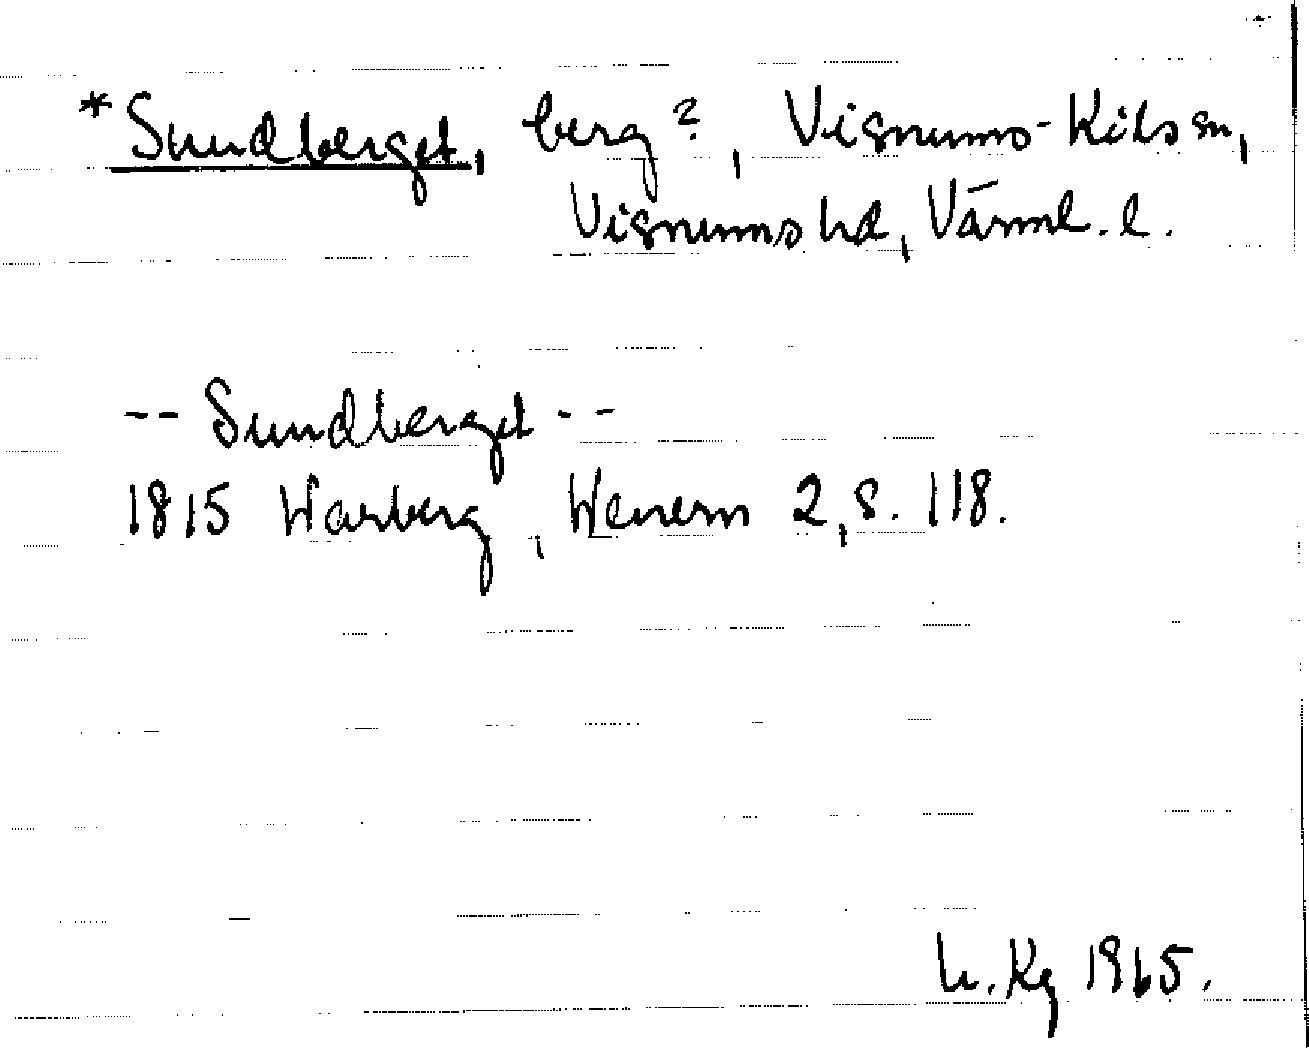 *Sundberget, berg?, Visnums-Kils sn,
Visnums hd, Värml. l.
-- Sundberget --
1815 Warberg, Wenern 2, s. 118.
Kg 1965.